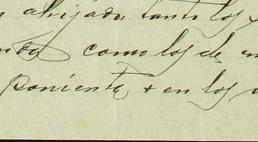 ahijado, tanto los
como los de
poniente, + en los